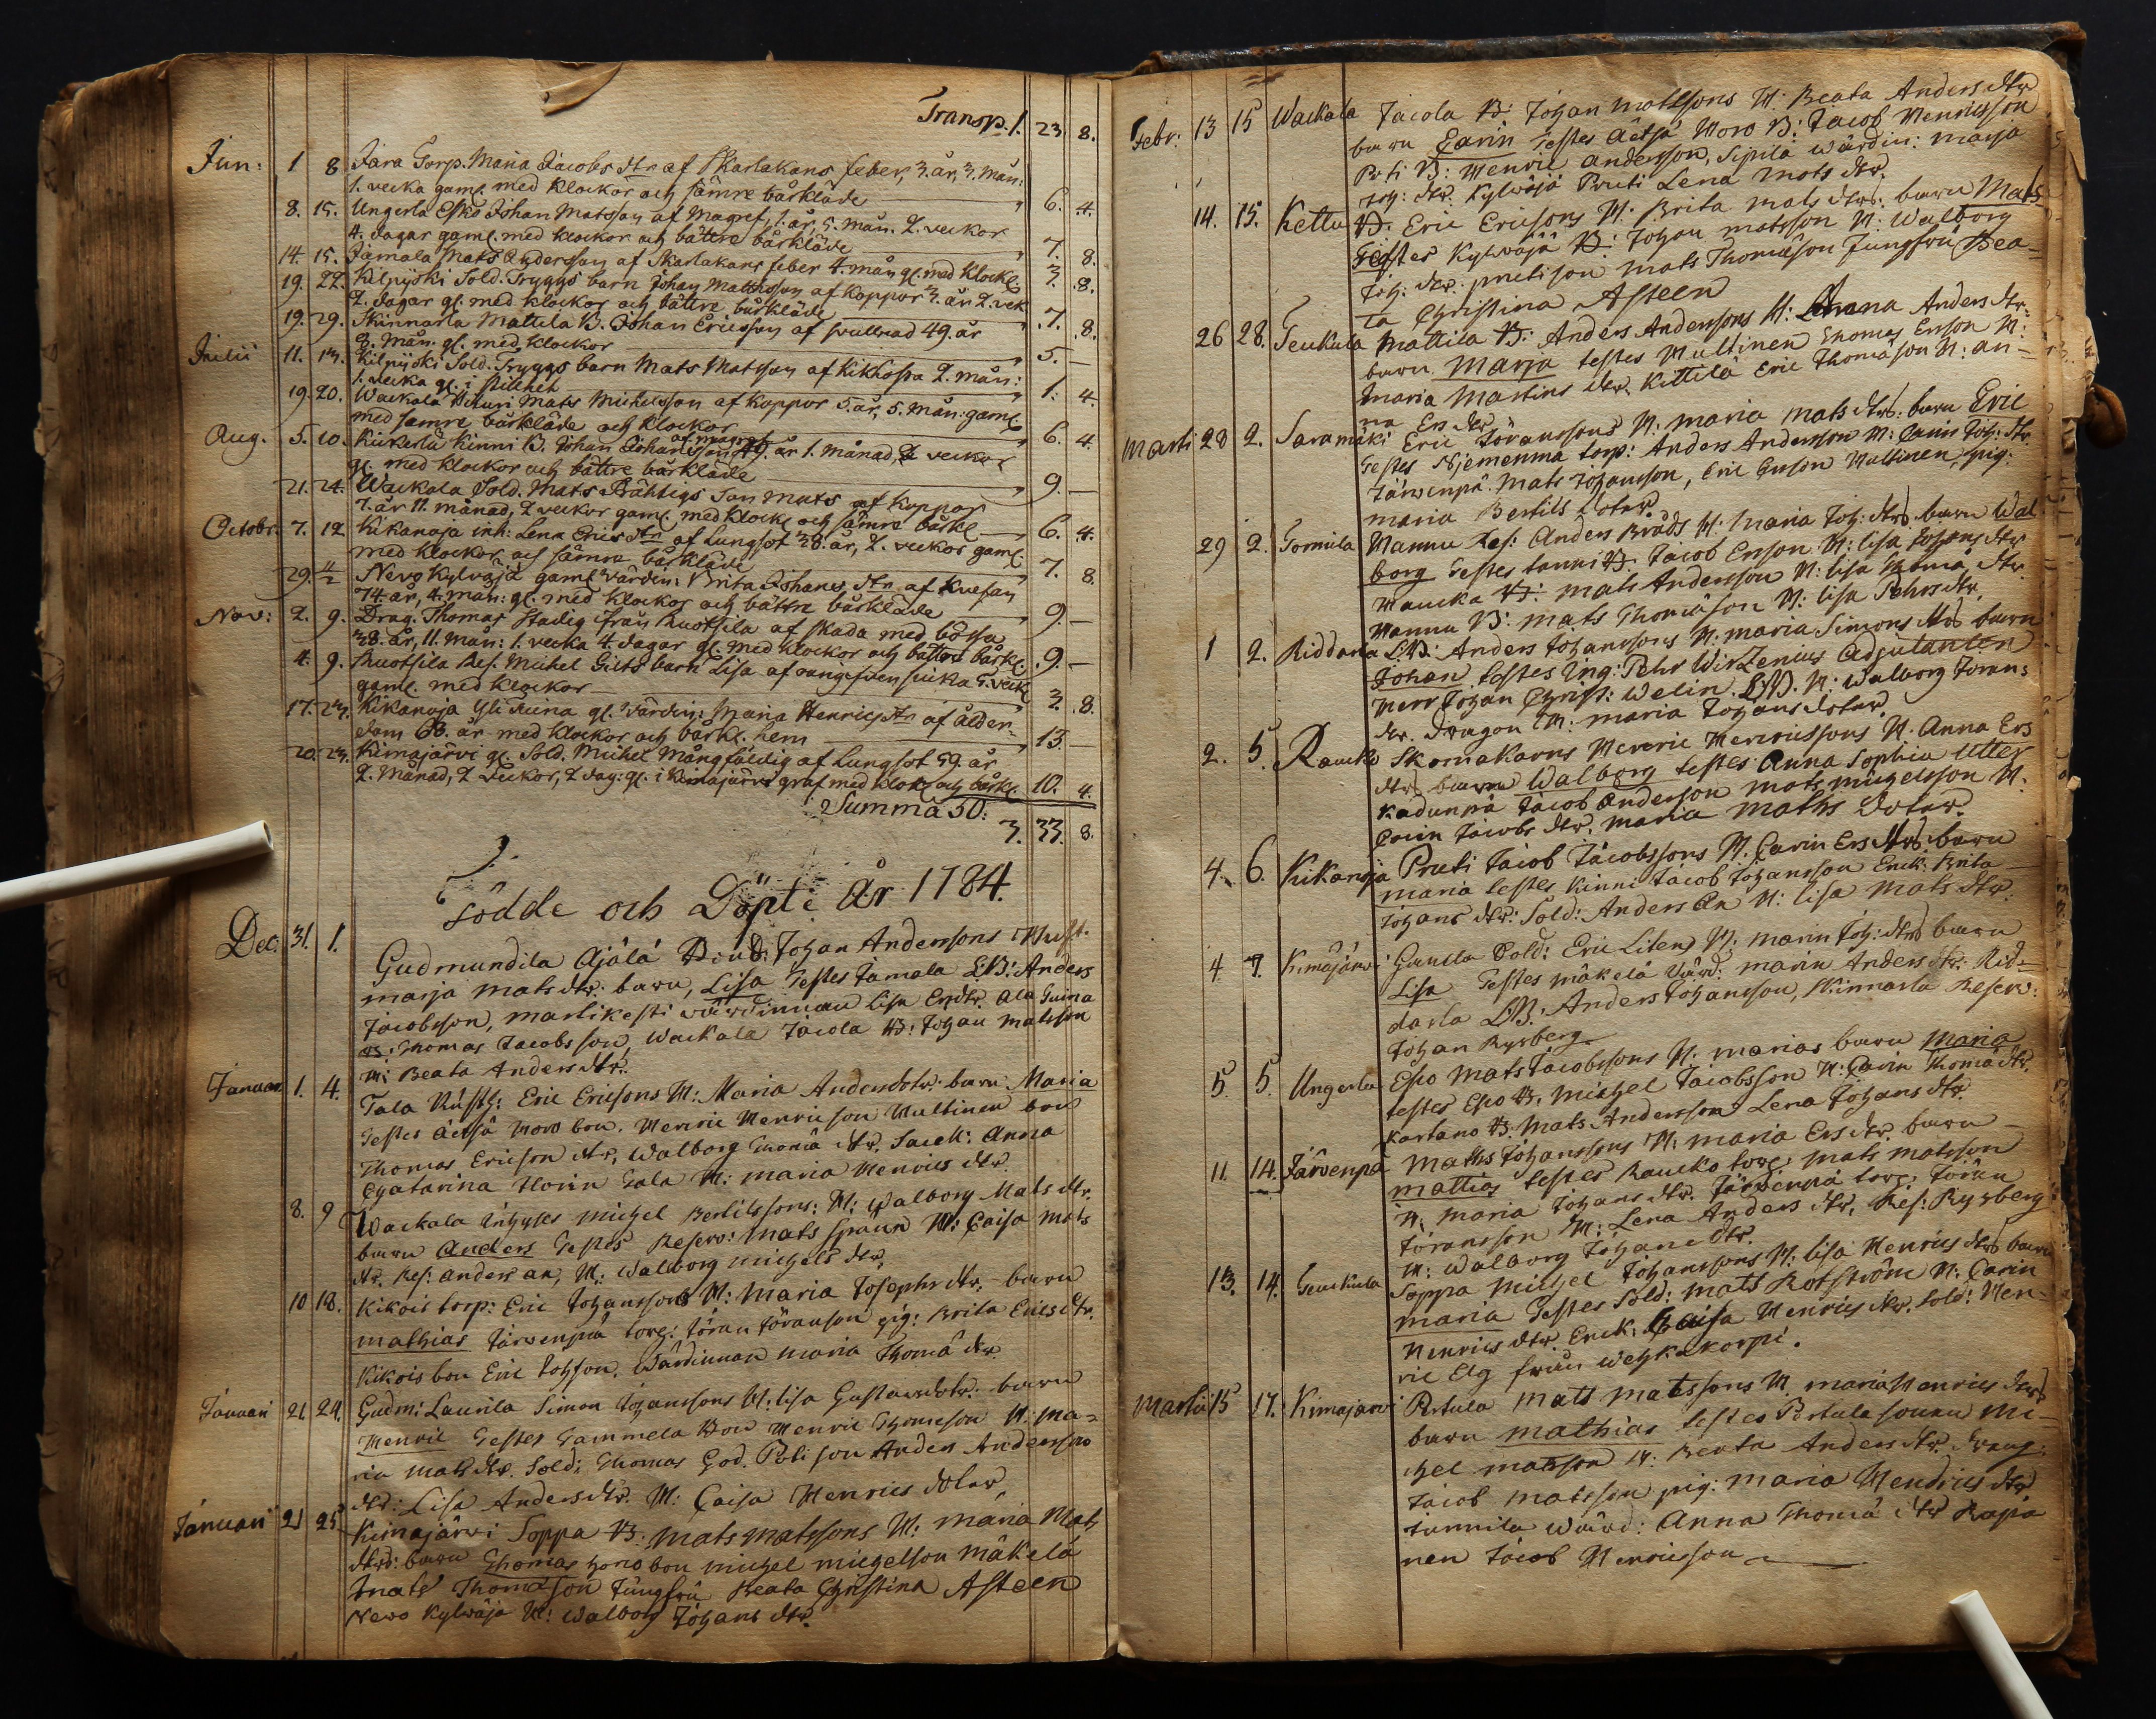 Transp. 1. 23. 8.
Jun: 1 8 Jara Torp. Maria Jacobs dtr af Skarlakans feber, 3. år, 3. mån:
1. vecka gaml. med klockor och sämre bårkläde 6. 4.
8. 15. Ungerla Esko Johan Matsson af Magref, 1. år, 5. mån. 2. veckor
4. dagar gaml. med klockor och bättre bårkläde 7. 8.
14. 15. Jamala Mats Andersson af Skarlakans feber 4. mån gl. med klockr 3. 8.
19. 22. Kilpijoki Sold. Tryggs barn Johan Mattsson af koppor 3. år 2. veck
2. dagar gl. med klockor och bättre bårkläde 7. 8.
19. 29. Skinnarla Mattila B. Johan Ericsson af 49. år
8. mån. gl. med klockor 5. —
Julii 11. 13. Kilpijoki Sold. Tryggs barn Mats Matsson af kikhosta 2. mån:
1. vecka gl. i stilhet 1. 4.
19. 20. Wackala Mats Michelsson af koppor 5. år, 5. mån: gaml
med sämre bårkläde och klockor 6. 4.
Aug. 5. 10. Kinni B. Johan Johansson af magref år 1. månad, 2 veckor
gl. med klockor och bättre bårkläde 9. —
21. 24. Wackala Sold. Mats Prähtigs Son Mats af koppor
7. år 11. månad, 2 veckor gaml. med klock och sämre bårkl 6. 4.
Octobr. 7. 12 Kikanoja inh: Lena Erics dtr af Lungsot 28. år, 2. veckor gaml.
med klockor och sämre bårkläde 7. 8.
29. Nevo Kylväjä gaml Värdin: Brita Johans dtr af
74. år, 4. mån: gl. med klockor och bättre bårkläde 9. —
Nov: 2. 9. Drag. Thomas Stadig ifrån Ruotsila af skada med bössa
38. år, 11. mån: 1. vecka 4. dagar gl. med klockor och bättre bårkl. 9. —
4. 9. Ruotsila Res. Michel Gilts barn Lisa af oangifven siuka 5. veck
gaml. med klockor 2. 8.
17. 23. Kikanoja Yli gl. Värdin: Maria Henrics dtr af ålder-
dom 63. år med klockor och bårkl. hem 13. —
20. 23. Kimajärvi gl. Sold. Michel Mångfäldig af Lungsot 59. år
2. månad, 2 veckor, 2 dag: gl. i Kimajärvi graf med klock och bårkl. 10. 4.
Summa 50:
3. 33. 8.
Födde och Döpte År 1784.
Dec: 31. 1. Gudmundila Ajälä Bond: Johan Anderssons Hust.
marja mats dtr. barn, Lisa Testes Jamala L:B: Anders
Jacobsson, martikesti värdinnan Lisa Ersdtr. Ala
B: Thomas Jacobsson, Wackala Jacola B: Johan matsson
H: Beata Anders dtr.
Januari 1. 4. Tala Rusth: Eric Ericsons H: Maria Andersdotr: barn Maria
Testes Äetsä Moro bon. Henric Henricson Multinen bon
Thomas Ericson dtr, Walborg Thomä dtr. Anna
Chatarina Horin Tala H: maria Henrics dtr.
8. 9 Wackala inhyses Michel Bertilssons: H: Walborg Mats dtr.
barn Anders Testes Reserv: mats H: Caisa mats
dtr. Res: Anders an, H: Walborg michels dtr.
10 18. Kikois torp: Eric Johanssons H: Maria Josephs dtr. barn
mathias Järvenpää torp: Jöran Jöranson pig: Brita Erics dtr.
Kikois bon Eric Johsson. Wärdinnan maria Thomä dtr
Januari 21 24. Gudm: Laurila Simon Johanssons H: lisa Gustavsdotr: barn
Henric Testes Gammela Bon Henric Thomson H: ma-
ria mats dtr. Sold: Thomas God. Poti son Anders Andersson
dtr: Lisa Anders dtr. H: Caisa Henrics dotter,
Januari 21 25 Kimajärvi Soppa B: Mats matssons H: maria Mats
dtrs: barn Thomas bon michel michelson Mäkelä
mats Thomäson Jungfru Beata Christina Asteen
Nevo Kylväjä H: Walborg Johans dtr.
Febr: 13 15 Wackala Jacola B: Johan mattssons H: Beata Anders dtr
barn Carin Testes Äetsä Moro B: Jacob Henricsson
Poti B: Henric andersson, Sipilä wärdin: marja
Joh: dtr. Kylväjä Pruti Lena mats dtr.
14. 15. Kettu B. Eric Ericsons H: Brita mats dtrs: barn Mats
Testes Kylwäjä B: Johan matsson H: Walborg
Joh: dtr: pruti son mats Thomäson Jungfru Bea-
ta Christina Asteen
26 28. Teukula Mattila B: Anders Anderssons H: Anna Anders dtr.
barn Marja testes Multinen Thomas Erson H:
Maria Martins dtr. Kittilä Eric Thomäson H: an-
na Ers dtr
Marti 28 2. Saramäki Eric Jöranssons H. maria mats dtrs: barn Eric
Testes Niemenmä torp: Anders Andersson H: Carin Joh: dtr.
Järvenpä Mats Johansson, Eric Erson Multinen, pig:
maria Bertils dotter.
29 2. Tornula Nannu Res: Anders Bråds H: Maria Joh: dtrs. barn Wal
borg Testes tanni B: Jacob Erson H: lisa Johans dtr
Maucka B: mats Andersson H: lisa Thomä dtr.
Nannu B: mats Thomäson H: lisa Pehrs dtr.
1 2. Riddarla L:B: Anders Johanssons H: maria Simons dtrs barn
Johan testes Ing: Pehr Wirzenius Adjutanten
Herr Johan Christ: Welin. L:B. H: Walborg Jörans
dtr. dragon H: maria Johans dotter.
2. 5. Raucko Skomakarens Henric Henricssons H. Anna Ers
dtrs barn Walborg testes Anna Sophia Utter
Kadunpä Jacob Anderson mats michelsson H.
Carin Jacobs dtr. Maria maths dotter.
4. 6. Kikanoja Pruti Jacob Jacobssons H. Carin Ers dtrs barn
maria testes Kinni Jacob Johansson Enck: Brita
Johans dtr: Sold: Anders An H: lisa Mats dtr.
4 7. Kimajärvi Sold: Eric Litens H. marin Joh: dtrs barn
Lisa Testes mäkelä Värd: marin Anders dtr. Rid-
darla L:B: Anders Johansson, Skinnarla Reserv:
Johan Rysberg.
5. 5. Ungerla Esco Mats Jacobssons H: marias barn Maria
testes Esco B: Michel Jacobsson H: Carin Thomä dtr.
Kartano B. Mats Andersson Lena Johans dtr.
11. 14. Järvenpä Mathis Johanssons H: maria Ers dtr. barn
mattias testes Raucko torp: mats matsson
H: maria Johans dtr. Järvenpä torp: Jöran
Jöransson H: Lena Anders dtr, Res: Rysberg
H: Walborg Johans dtr.
13. 14. Teuckula Soppa Michel Johanssons H: lisa Henrics dtrs barn
maria Testes Sold: Mats Rotström H: Carin
Henrics dtr. Enck: Caisa Henrics dtr. Sold: Hen-
ric Elg från Wehkakorpi.
Martii 15 17. Kimajarvi Pertula Mats Matssons H. maria Henrics dtrs
barn mathias testes Pertula sonen Mi-
chel matsson H: Beata Anders dtr. dreng:
Jacob matsson pig: maria Hendrics dtr
Junnila Wärd: Anna Thomä dtr Rapa
nen Jacob Henricsson